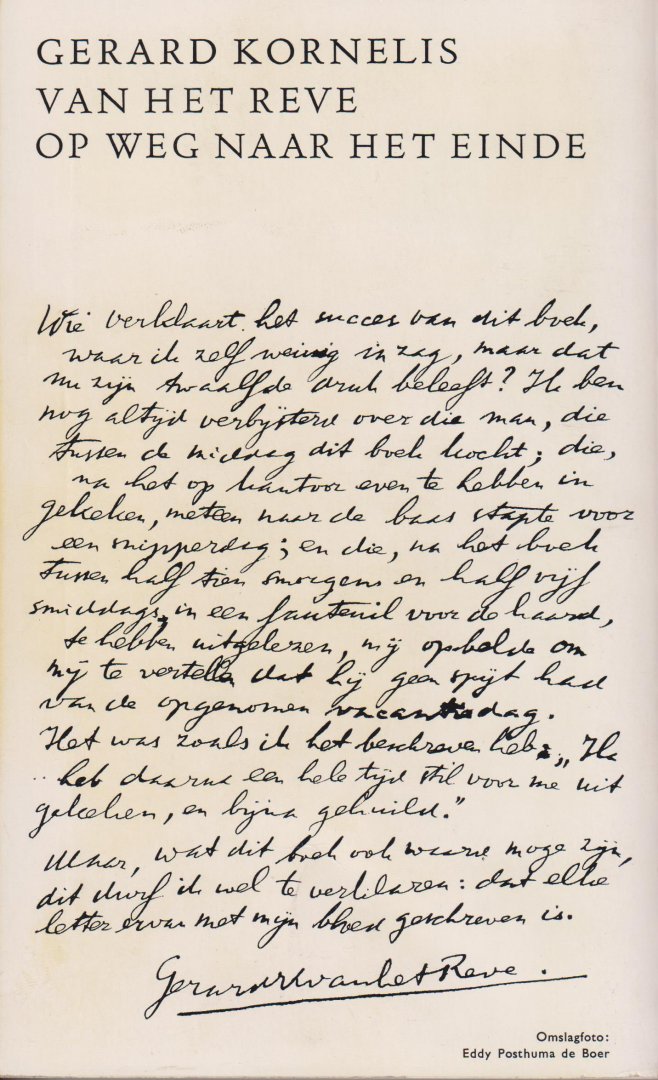 GERARD KORNELIS
VAN HET REVE
OP WEG NAAR HET EINDE
Wie verklaart het succes van dit boek,
waar ik zelf weinig in zag, maar dat
nu zijn twaalfde druk beleeft? Ik ben
nog altijd verbijsterd over die man, die
tussen de middag dit boek kocht; die,
na het op kantoor even te hebben in
gekeken, meteen naar de baas stapte voor
een snipperdag; en die, na het boek
tussen half tien smorgens en half vijf
smiddags, in een fauteuil voor de haard,
te hebben uitgelezen, mij opbelde om
mij te vertellen dat hij geen spijt had
van de opgenomen vacantiedag.
Het was zoals ik het beschreven heb: „Ik
heb daarna een hele tijd stil voor me uit
gekeken, en bijna gehuild."
Maar, wat dit boek ook waard moge zijn,
dit durf ik wel te verklaren: dat elke
letter ervan met mijn bloed geschreven is.
Gerard K van het Reve.
Omslagfoto:
Eddy Posthuma de Boer